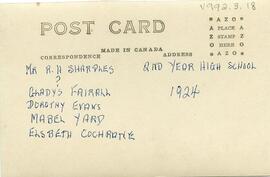 V992.3.18
POST CARD
MADE IN CANADA
CORRESPONDENCE
ADDRESS
AZO
PLACE
STAMP
HERE
AZO
MR R.H SHARPLES
2ND YEAR HIGH SCHOOL
?
GLADYS FAIRALL
1924
DOROTHY EVANS
MABEL YARD
ELSBETH COCHRANE